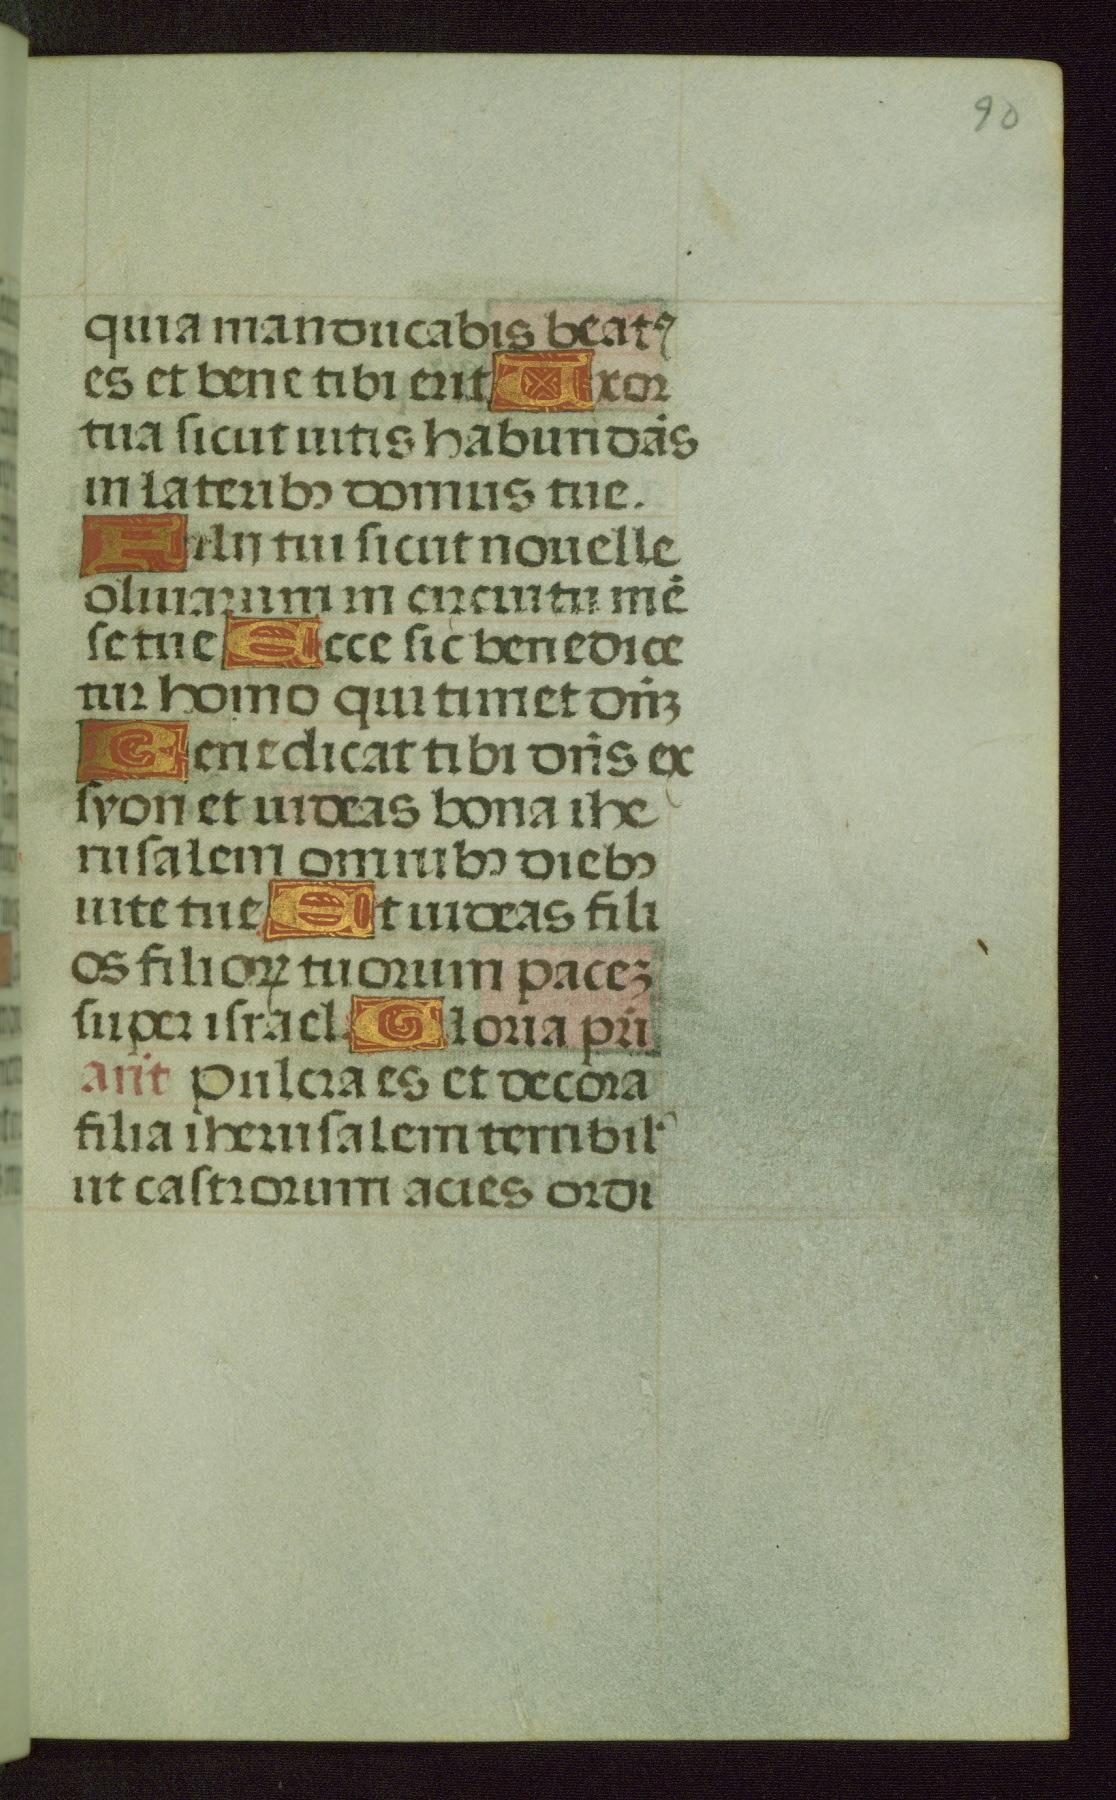 90
quia manducabis beatꝰ
es et bene tibi erit Uxor
tua sicut uitis habundās
in lateribꝫ domus tue.
Filij tui sicut nouelle
oliuarum in circuitu mē
se tue Ecce sic benedice
tur homo qui timet dn̄ꝫ
Benedicat tibi dn̄s ex
syon et uideas bona ihe
rusalem omnibꝫ diebꝫ
uite tue Et uideas fili
os filioꝝ tuorum paceꝫ
super israel. Gloria pr̄i
an̄t Pulcra es et decora
filia iherusalem terribil᾽
ut castrorum acies ordi